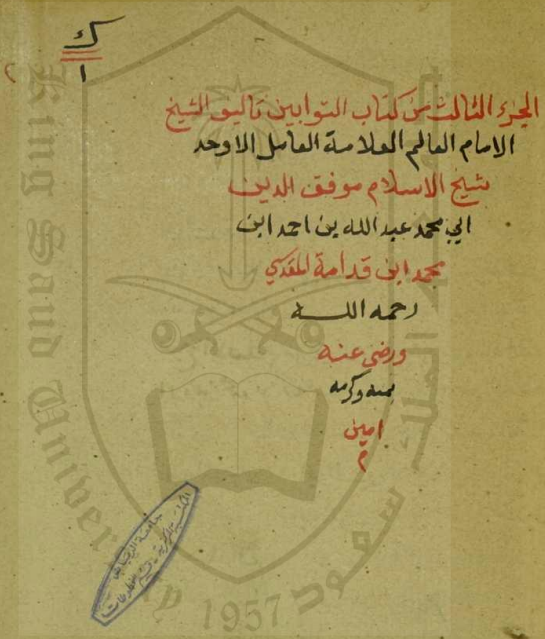 ك
١
الجزء الثالث من كتاب التوابين تاليف الشيخ
الامام العالم العلامة العامل الاوحد
شيخ الاسلام موفق الدين
ابي محمد عبد الله بن احمد ابن
محمد ابن قدامة المقدسي
رحمه الله
ورضي عنه
بمنه وكرمه
امين
م
جامعة الرياض
King Saud University 1957